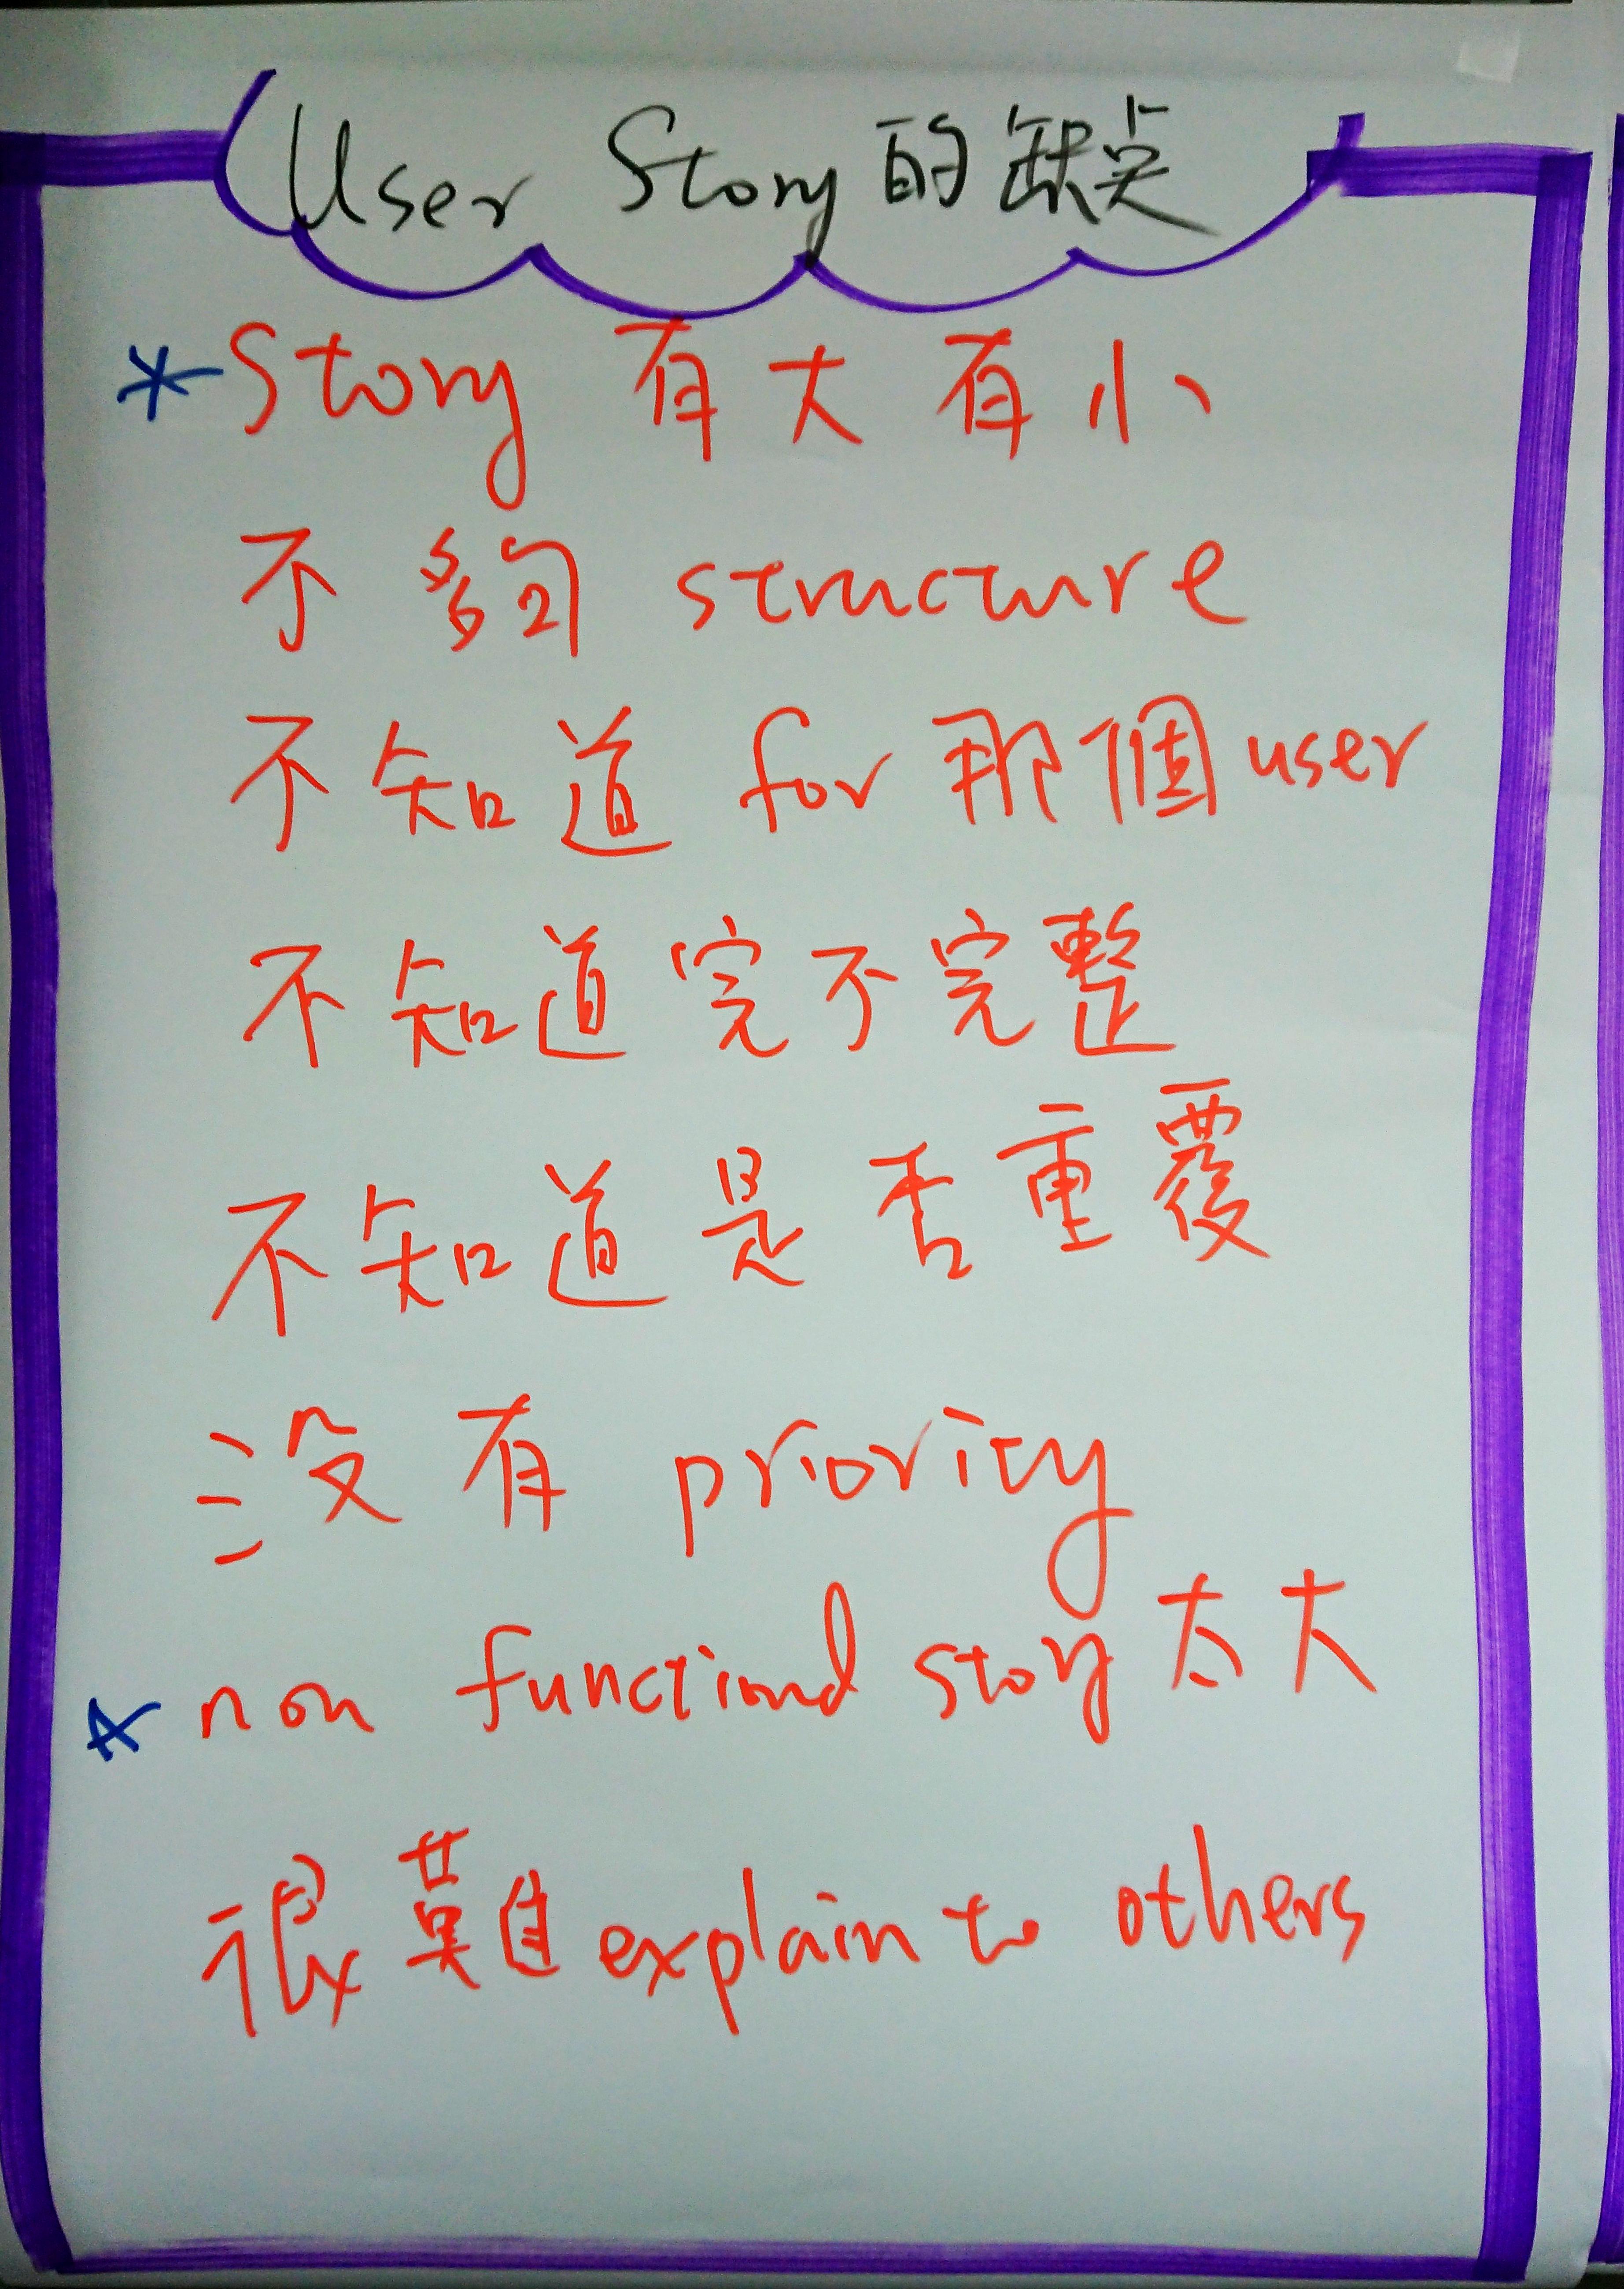 User Story 的缺点
* Story 有大有小
不夠 structure
不知道 for 那個 user
不知道完不完整
不知道是否重覆
沒有 priority
☆ non functional story 太大
很難 explain to others